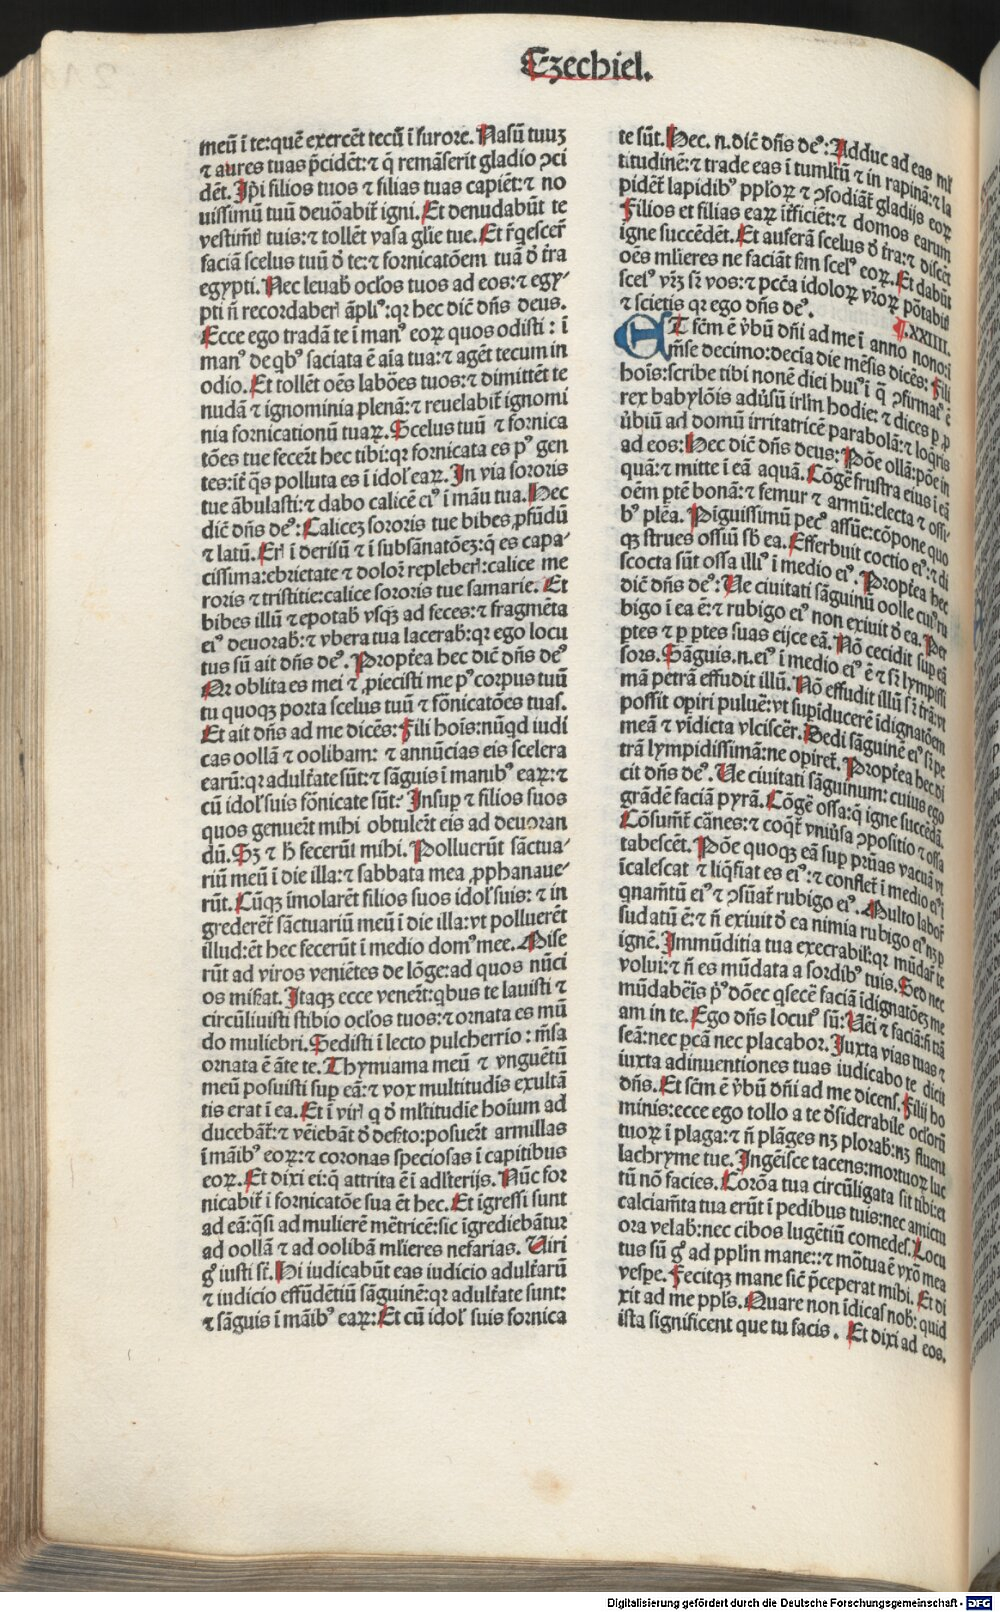 Ezechiel.
meū ī te:quē exercēt tecū ī furore. Nasū tuuꝫ
ꞇ aures tuas p̄cidēt:ꞇ q̄ remāserit gladio ↄci
dēt. Ip̄i filios tuos ꞇ filias tuas capiēt:ꞇ no
uissimū tuū deuōabit̄ igni. Et denudabūt te
vestimt̄ tuis:ꞇ tollēt vasa gl̄ie tue. Et r̄qescer̄
faciā scelus tuū ō te:ꞇ fornicatōem tuā ō t̄ra
egypti. Nec leuab̄ ocl̄os tuos ad eos:ꞇ egy-
pti n̄ recordaber̄ āpli⁹:qꝛ hec dic̄ dn̄s deus.
Ecce ego tradā te ī man⁹ eoꝝ quos odisti: ī
man⁹ de qb⁹ saciata ē aīa tua:ꞇ agēt tecum in
odio. Et tollēt oēs labōes tuos:ꞇ dimittēt te
nudā ꞇ ignominia plenā:ꞇ reuelabit̄ ignomi
nia fornicationū tuaꝝ. Scelus tuū ꞇ fornica
tōes tue fecer̄t hec tibi:qꝛ fornicata es p⁹ gen
tes:īt̄ q̄s polluta es ī idol̄ eaꝝ. In via sororis
tue ābulasti:ꞇ dabo calicē ei⁹ ī māu tua. Hec
dic̄ dn̄s de⁹: Caliceꝫ sororis tue bibes ꝓfūdū
ꞇ latū. Er̄ ī derisū ꞇ ī subsānatōeꝫ:q̄ es capa-
cissima:ebrietate ꞇ dolor̄ repleber̄:calice me
roris ꞇ tristitie:calice sororis tue samarie. Et
bibes illū ꞇ epotab̄ vsqꝫ ad feces:ꞇ fragmēta
ei⁹ deuorab̄:ꞇ vbera tua lacerab̄:qꝛ ego locu
tus sū ait dn̄s de⁹. Propt̄ea hec dic̄ dn̄s de⁹
Qꝛ oblita es mei ꞇ ꝓiecisti me p⁹ corpus tuū
tu quoqꝫ porta scelus tuū ꞇ fōnicatōes tuas.
Et ait dn̄s ad me dicēs: Fili hoīs:nūqd iudi
cas oollā ꞇ oolibam: ꞇ annūcias eis scelera
earū:qꝛ adult̄ate sūt:ꞇ sāguis ī manib⁹ eaꝝ:ꞇ
cū idol̄ suis fōnicate sūt: Insup ꞇ filios suos
quos genuer̄t mihi obtuler̄t eis ad deuoran
dū. Sꝫ ꞇ h̄ fecerūt mihi. Polluerūt sāctua-
riū meū ī die illa:ꞇ sabbata mea ꝓphanaue-
rūt. Cūqꝫ īmolarēt filios suos idol̄ suis: ꞇ in
grederēt̄ sāctuariū meū ī die illa:vt polluerēt
illud:ēt hec fecerūt ī medio dom⁹ mee. Mise
rūt ad viros veniētes de lōge:ad quos nūci
os miserat. Itaqꝫ ecce vener̄t:qbus te lauisti ꞇ
circūliuisti stibio ocl̄os tuos:ꞇ ornata es mū
do muliebri. Sedisti ī lecto pulcherrio: m̄sa
ornata ē āte te. Thymiama meū ꞇ vnguētū
meū posuisti sup eā:ꞇ vox multitudīs exultā
tis erat ī ea. Et ī vir̄ q ō ml̄titudie hoīum ad
ducebāt̄:ꞇ vēiebāt ō desto:posuer̄t armillas
ī māib⁹ eoꝝ:ꞇ coronas speciosas ī capitibus
eoꝝ. Et dixi ei:q̄ attrita ē ī adlt̄erijs. Nūc for
nicabit̄ ī fornicatōe sua ēt hec. Et īgressi sunt
ad eā:q̄si ad mulierē mētricē:sic īgrediebātur
ad oollā ꞇ ad oolibā ml̄ieres nefarias. Uiri
g⁹ iusti st̄. Hi iudicabūt eas iudicio adult̄arū
ꞇ iudicio effūdētiū sāguinē:qꝛ adult̄ate sunt:
ꞇ sāguis ī māib⁹ eaꝝ: Et cū idol̄ suis fornica
te sūt. Hec .n. dic̄ dn̄s de⁹: Adduc ad eas ml̄
titudinē: ꞇ trade eas ī tumltū ꞇ in rapinā:ꞇ la
pidēt̄ lapidib⁹ ppl̄oꝝ ꞇ ↄfodiāt̄ gladijs eoꝝ
Filios et filias eaꝝ īt̄ficiēt:ꞇ domos earum
igne succēdēt. Et auferā scelus ō t̄ra:ꞇ discēt
oēs ml̄ieres ne faciāt sm̄ scel⁹ eoꝝ. Et dabūt
scel⁹ vr̄ꝫ sr̄ vos:ꞇ pcc̄a idoloꝝ vr̄oꝝ pōtabit̄
ꞇ scietis qꝛ ego dn̄s de⁹.
¶.XXIIII.
ET fcm̄ ē v̄bū dn̄i ad me ī anno nono:ī
m̄se decimo:decīa die mēsis dicēs: Fili
hoīs:scribe tibi nomē diei hui⁹ ī q̄ ↄfirmat⁹ ē
rex babylōis adūsū irl̄m hodie: ꞇ dices ꝑ ꝓ
ūbiū ad domū irritatricē parabolā:ꞇ loq̄ris
ad eos: Hec dic̄ dn̄s deus: Pōe ollā: pōe in
quā:ꞇ mitte ī eā aquā. Cōgē frustra eius ī eā
oēm ptē bonā:ꞇ femur ꞇ armū:electa ꞇ ossi-
b⁹ plēa. Pīguissimū pec⁹ assūe:cōpone quo
qꝫ strues ossiū sb̄ ea. Efferbuit coctio ei⁹:ꞇ di
scocta sūt ossa illi⁹ ī medio ei⁹. Propt̄ea hec
dic̄ dn̄s de⁹: Ue ciuitati sāguinū oolle cui⁹ ru
bigo ī ea ē:ꞇ rubigo ei⁹ non exiuit ō ea. Per
ptes ꞇ p ptes suas eijce eā. Nō cecidit sup eā
sors. Sāguis .n. ei⁹ ī medio ei⁹ ē ꞇ sr̄ lympissi
mā petrā effudit illū. Nō effudit illū sr̄ t̄rā:vt
possit opiri puluē:vt supiducerē īdignatōem
meā ꞇ vīdicta vlciscēr. Dedi sāguinē ei⁹ sr̄ pe
trā lympidissimā:ne opiret̄. Propt̄ea hec di
cit dn̄s de⁹. Ue ciuitati sāguinum: cuius ego
grādē faciā pyrā. Cōgē ossa:q̄ igne succēdā.
Cōsumt̄ cānes:ꞇ coqt̄ vniūsa ↄpositio ꞇ ossa
tabescēt. Pōe quoqꝫ eā sup prūas vacuā vt
īcalescat ꞇ liqfiat es ei⁹:ꞇ conflet̄ ī medio ei⁹ ī
qnamtū ei⁹ ꞇ ↄsūat̄ rubigo ei⁹. Multo labor̄
sudatū ē:ꞇ n̄ exiuit ō ea nimia rubigo ei⁹ nꝫ ꝑ
ignē. Immūditia tua execrabil̄:qꝛ mūdar̄ te
volui:ꞇ n̄ es mūdata a sordib⁹ tuis. Sed nec
mūdabēis p⁹ dōec qsecē faciā īdignatōeꝫ me
am in te. Ego dn̄s locut⁹ sū: Uēi ꞇ faciā:n̄ trā
seā:nec pcā nec placabor. Iuxta vias tuas ꞇ
iuxta adinuentiones tuas iudicabo te dicit
dn̄s. Et fcm̄ ē v̄bū dn̄i ad me dicens. Filij ho
minis:ecce ego tollo a te ōsiderabile oclorū
tuoꝝ ī plaga:ꞇ n̄ plāges nꝫ plorab̄:nꝫ fluent
lachryme tue. Ingēisce tacens:mortuoꝝ luc
tū nō facies. Corōa tua circūligata sit tibi:et
calciamt̄a tua erūt ī pedibus tuis:nec amictu
ora velab̄:nec cibos lugētiū comedes. Locu
tus sū g⁹ ad pplm̄ mane::ꞇ mōtua ē vxō mea
vespe. Fecitqꝫ mane sic̄ p̄ceperat mihi. Et di
xit ad me ppl̄s. Quare non īdicas nob̄: quid
ista significent que tu facis. Et dixi ad eos.
Digitalisierung gefördert durch die Deutsche Forschungsgemeinschaft - DFG